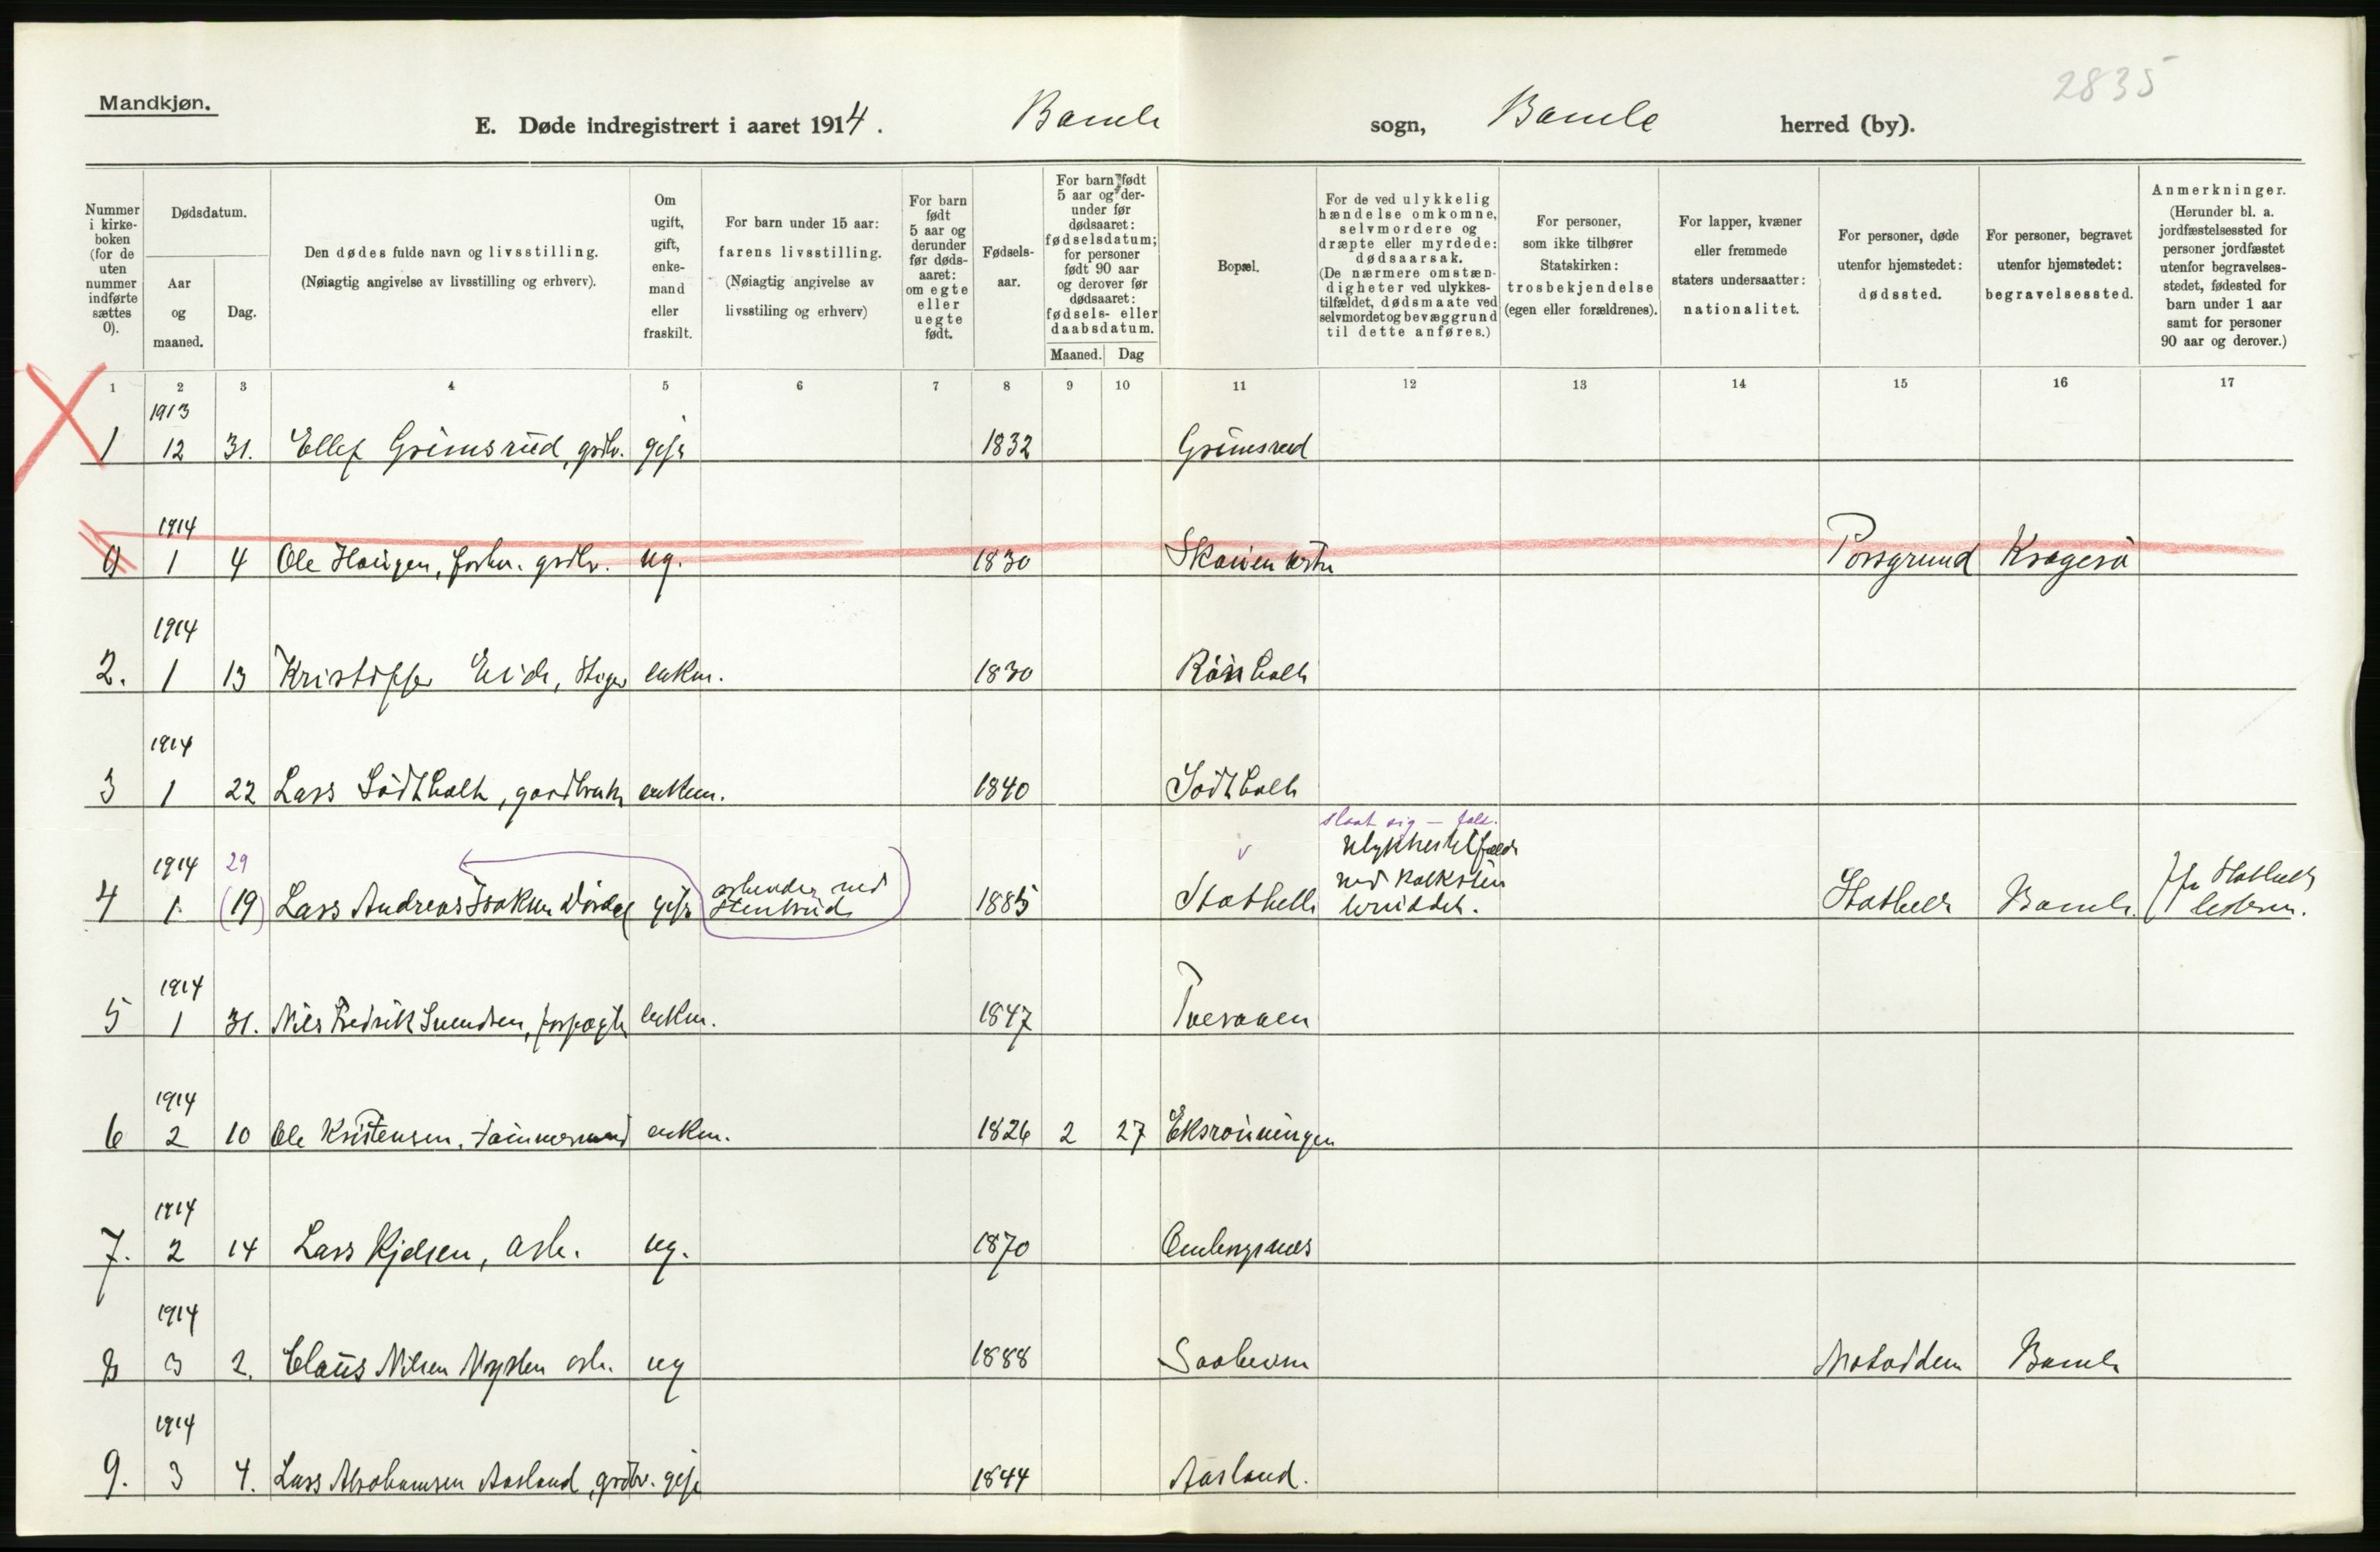 2835
Mandkjøn.
E. Døde indregistrert i aaret 1914. Bamle sogn, Bamle herred (by).
Nummer i kirke-boken (for de uten nummer indførte sættes 0).
Dødsdatum.
Aar og maaned.
Dag.
Den dødes fulde navn og livsstilling.
(Nøiagtig angivelse av livsstilling og erhverv).
Om ugift, gift, enke-mand eller fraskilt.
For barn under 15 aar: farens livsstilling.
(Nøiagtig angivelse av livsstiling og erhverv)
For barn født 5 aar og derunder før døds-aaret: om egte eller uegte født.
Fødsels-aar.
For barn født 5 aar og der-under før dødsaaret: fødselsdatum; for personer født 90 aar og derover før dødsaaret: fødsels- eller daabsdatum.
Maaned. Dag
Bopæl.
For de ved ulykkelig hændelse omkomne, selvmordere og dræpte eller myrdede: dødsaarsak.
(De nærmere omstæn-digheter ved ulykkes-tilfældet, dødsmaate ved selvmordet og bevæggrund til dette anføres.)
For personer, som ikke tilhører Statskirken: trosbekjendelse (egen eller forældrenes).
For lapper, kvæner eller fremmede staters undersaatter: nationalitet.
For personer, døde utenfor hjemstedet: dødssted.
For personer, begravet utenfor hjemstedet: begravelsessted.
Anmerkninger.
(Herunder bl. a. jordfæstelsessted for personer jordfæstet utenfor begravelses-stedet, fødested for barn under 1 aar samt for personer 90 aar og derover.)
1 2 3 4 5 6 7 8 9 10 11 12 13 14 15 16 17
1913
1 12 31. Ellef Grimsrud, grdbr. gift 1832 Grimsrud
1914
0 1 4 Ole Haugen, forhv. grdbr. ug. 1830 Skauen østre Porsgrund Kragerø
1914
2. 1 13 Kristoffer Eide, stiger enkm. 1830 Rønholt
1914
3 1 22 Lars Södtholt, gaardbruker enkem. 1840 Södtholt
slaat sig — fald.
1914 29 v ulykkestilfælde
4 1. (19) Lars Andreas Isaksen Dørdal gift arbeider ved stenbrud 1885 Stathelle ved kalksten bruddet. Stathelle Bamle.
1914
5 1 31. Nils Fredrik Svendsen, forpagter enkm. 1847 Tveraaen
1914
6 2 10 Ole Kristensen, tømmermand enkm. 1826 2 27 Eksrønningen
1914
7. 2 14 Lars Kjelsen, arb. ug. 1870 Omborgsnes
1914
8 3 2. Claus Nilsen arb. ug 1888 Saaheim Notodden Bamle
1914
9. 3 4. Lars Abrahamsen Aasland, grdbr. gift 1844 Aasland.